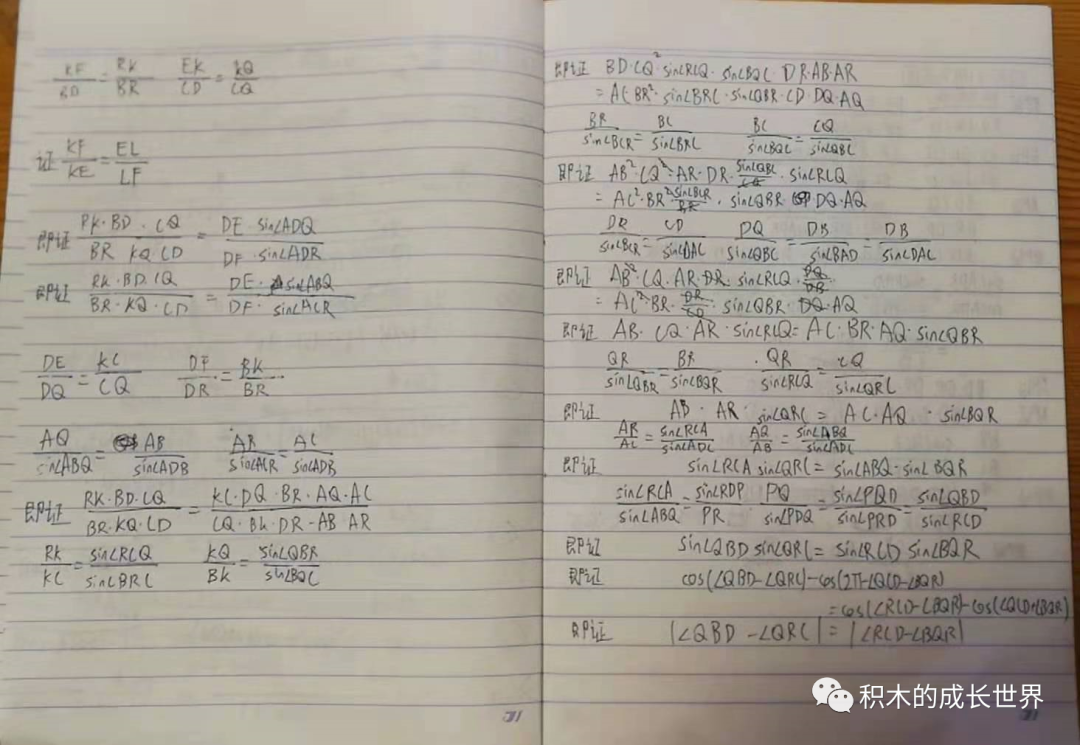 KF/BD = RK/BR  EK/CD = KQ/CQ
证 KF/KE = EL/LF
即证 RK·BD·CQ/BR·KQ·CD = DE·sin∠ADQ/DF·sin∠ADR
即证 RK·BD·CQ/BR·KQ·CD = DE·sin∠ABQ/DF·sin∠ACR
DE/DQ = KC/CQ  DF/DR = BK/BR
AQ/sin∠ABQ = AB/sin∠ADB  AR/sin∠ACR = AC/sin∠ADB
即证 RK·BD·CQ/BR·KQ·CD = KC·DQ·BR·AQ·AC/CQ·BK·DR·AB·AR
RK/KC = sin∠RCQ/sin∠BRC  KQ/BK = sin∠QBR/sin∠BQC
即证 BD·CQ²·sin∠RCQ·sin∠BQC·DR·AB·AR
= AC·BR²·sin∠BRC·sin∠QBR·CD·DQ·AQ
BR/sin∠BCR = BC/sin∠BRC  BC/sin∠BQC = CQ/sin∠QBC
即证 AB²·CQ²·AR·DR·sin∠QBC/CQ·sin∠RCQ
= AC²·BR²·sin∠BCR/BR·sin∠QBR·DQ·AQ
DR/sin∠BCR = CD/sin∠DAC  DQ/sin∠QBC = DB/sin∠BAD = DB/sin∠DAC
即证 AB²·CQ·AR·DR·sin∠RCQ·DQ/DB
= AC²·BR·DR/CD·sin∠QBR·DQ·AQ
即证 AB·CQ·AR·sin∠RCQ = AC·BR·AQ·sin∠QBR
QR/sin∠QBR = BR/sin∠BQR  QR/sin∠RCQ = CQ/sin∠QRC
即证 AB·AR sin∠QRC = AC·AQ·sin∠BQR
AR/AC = sin∠RCA/sin∠ADC  AQ/AB = sin∠ABQ/sin∠ADC
即证 sin∠RCA sin∠QRC = sin∠ABQ·sin∠BQR
sin∠RCA/sin∠ABQ = sin∠RDP/sin∠PDQ PQ/PR = sin∠PQD/sin∠PRD = sin∠QBD/sin∠RCD
即证 sin∠QBD sin∠QRC = sin∠RCD sin∠BQR
即证 cos(∠QBD-∠QRC)-cos(2π-∠QCD-∠BQR)
= cos(∠RCD-∠BQR)-cos(∠QCD+∠BQR)
即证 |∠QBD-∠QRC| = |∠RCD-∠BQR|
积木的成长世界